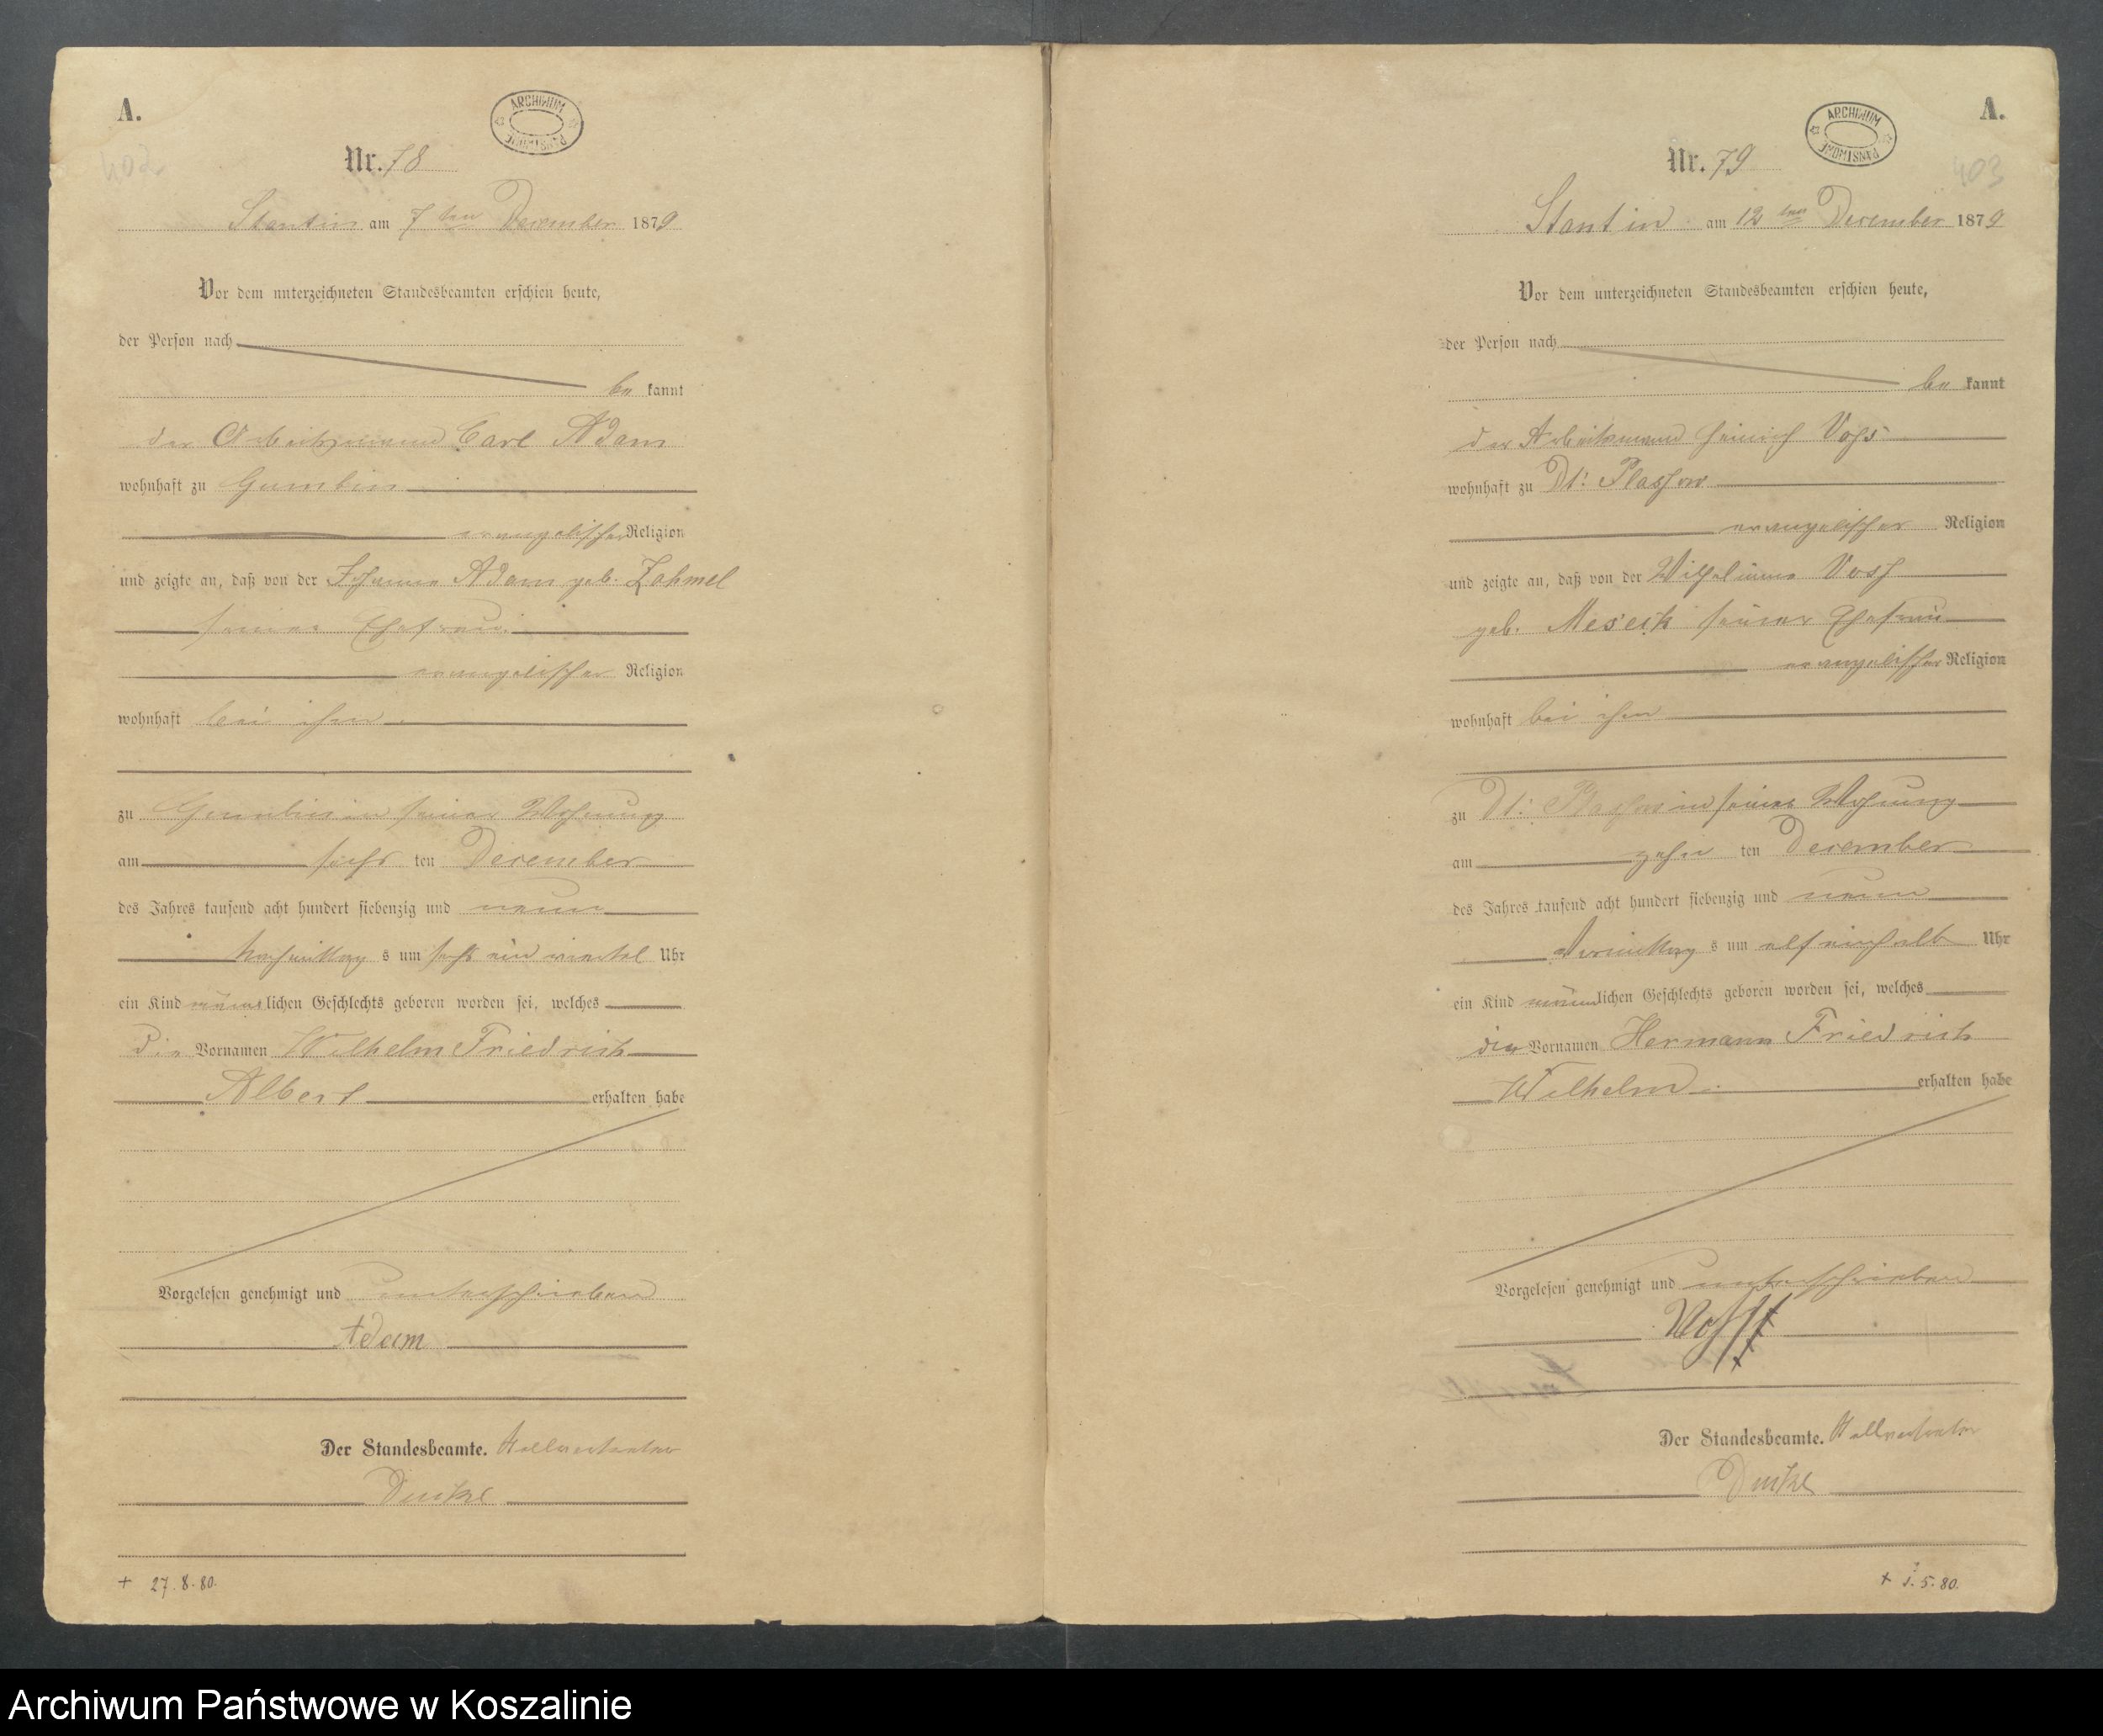 A.
402
ARCHIWUM PAŃSTWOWE
Nr. 78
Stantin am 7ten December 1879
Vor dem unterzeichneten Standesbeamten erschien heute,
der Person nach
be kannt
der Arbeitsmann Carl Adam
wohnhaft zu Gumbin
evangelischer Religion
und zeigte an, daß von der Johanna Adam geb. Zahmel
seiner Ehefrau
evangelischer Religion
wohnhaft bei ihm
zu Gumbin in seiner Wohnung
am sechs ten December
des Jahres tausend acht hundert siebenzig und neun
Nachmittag s um sechs ein viertel Uhr
ein Kind männlichen Geschlechts geboren worden sei, welches
die Vornamen Wilhelm Friedrich
Albert erhalten habe
Vorgelesen genehmigt und unterschrieben
Adam
Der Standesbeamte. Stellvertreter
+ 27.8.80.
A.
403
ARCHIWUM PAŃSTWOWE
Nr. 79
Stantin am 12ten December 1879
Vor dem unterzeichneten Standesbeamten erschien heute,
der Person nach
be kannt
der Arbeitsmann Heinrich Voss
wohnhaft zu Dt: Plassow
evangelischer Religion
und zeigte an, daß von der Wilhelmine Voss
geb. Meseck seiner Ehefrau
evangelischer Religion
wohnhaft bei ihm
zu Dt: Plassow in seiner Wohnung
am zehn ten December
des Jahres tausend acht hundert siebenzig und neun
Vormittag s um elf einhalb Uhr
ein Kind männlichen Geschlechts geboren worden sei, welches
die Vornamen Hermann Friedrich
Wilhelm erhalten habe
Vorgelesen genehmigt und unterschrieben
Voss
Der Standesbeamte. Stellvertreter
Archiwum Państwowe w Koszalinie